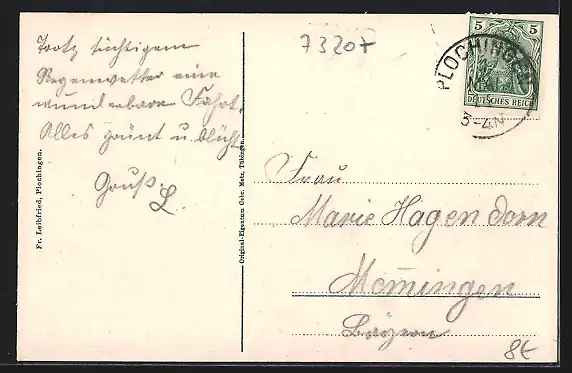 Trotz tüchtigem
Regenwetter eine
wunderbare Fahrt.
Alles grünt u. blüht.
Gruß.
L.
Fr. Leibfried, Plochingen.
Original-Eigentum Gebr. Metz, Tübingen.
7320F
5 5
DEUTSCHES REICH
PLOCHINGEN
3-4N
Frau
Marie Hagendorn
Memmingen
Bayern
8€